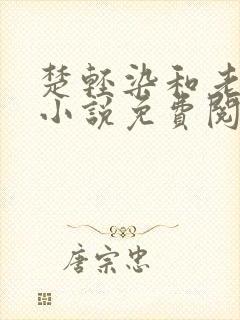 楚轻染和老
小說免費閱
唐宗忠